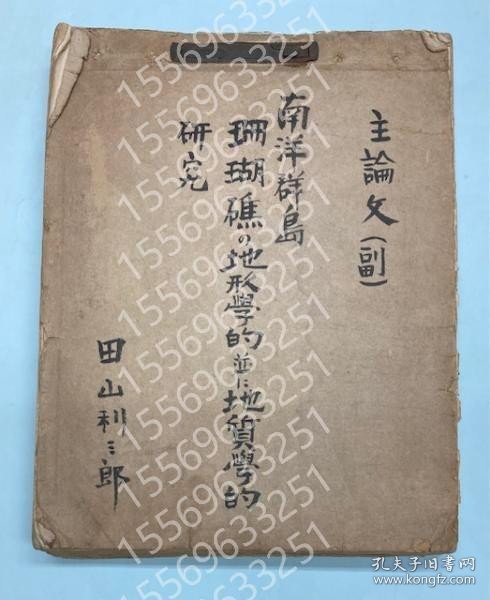 主論文(副)
南洋群島
珊瑚礁の地形學的並に地質學的
研究
田山利三郎
15569633251
孔夫子旧书网
www.kongfz.com